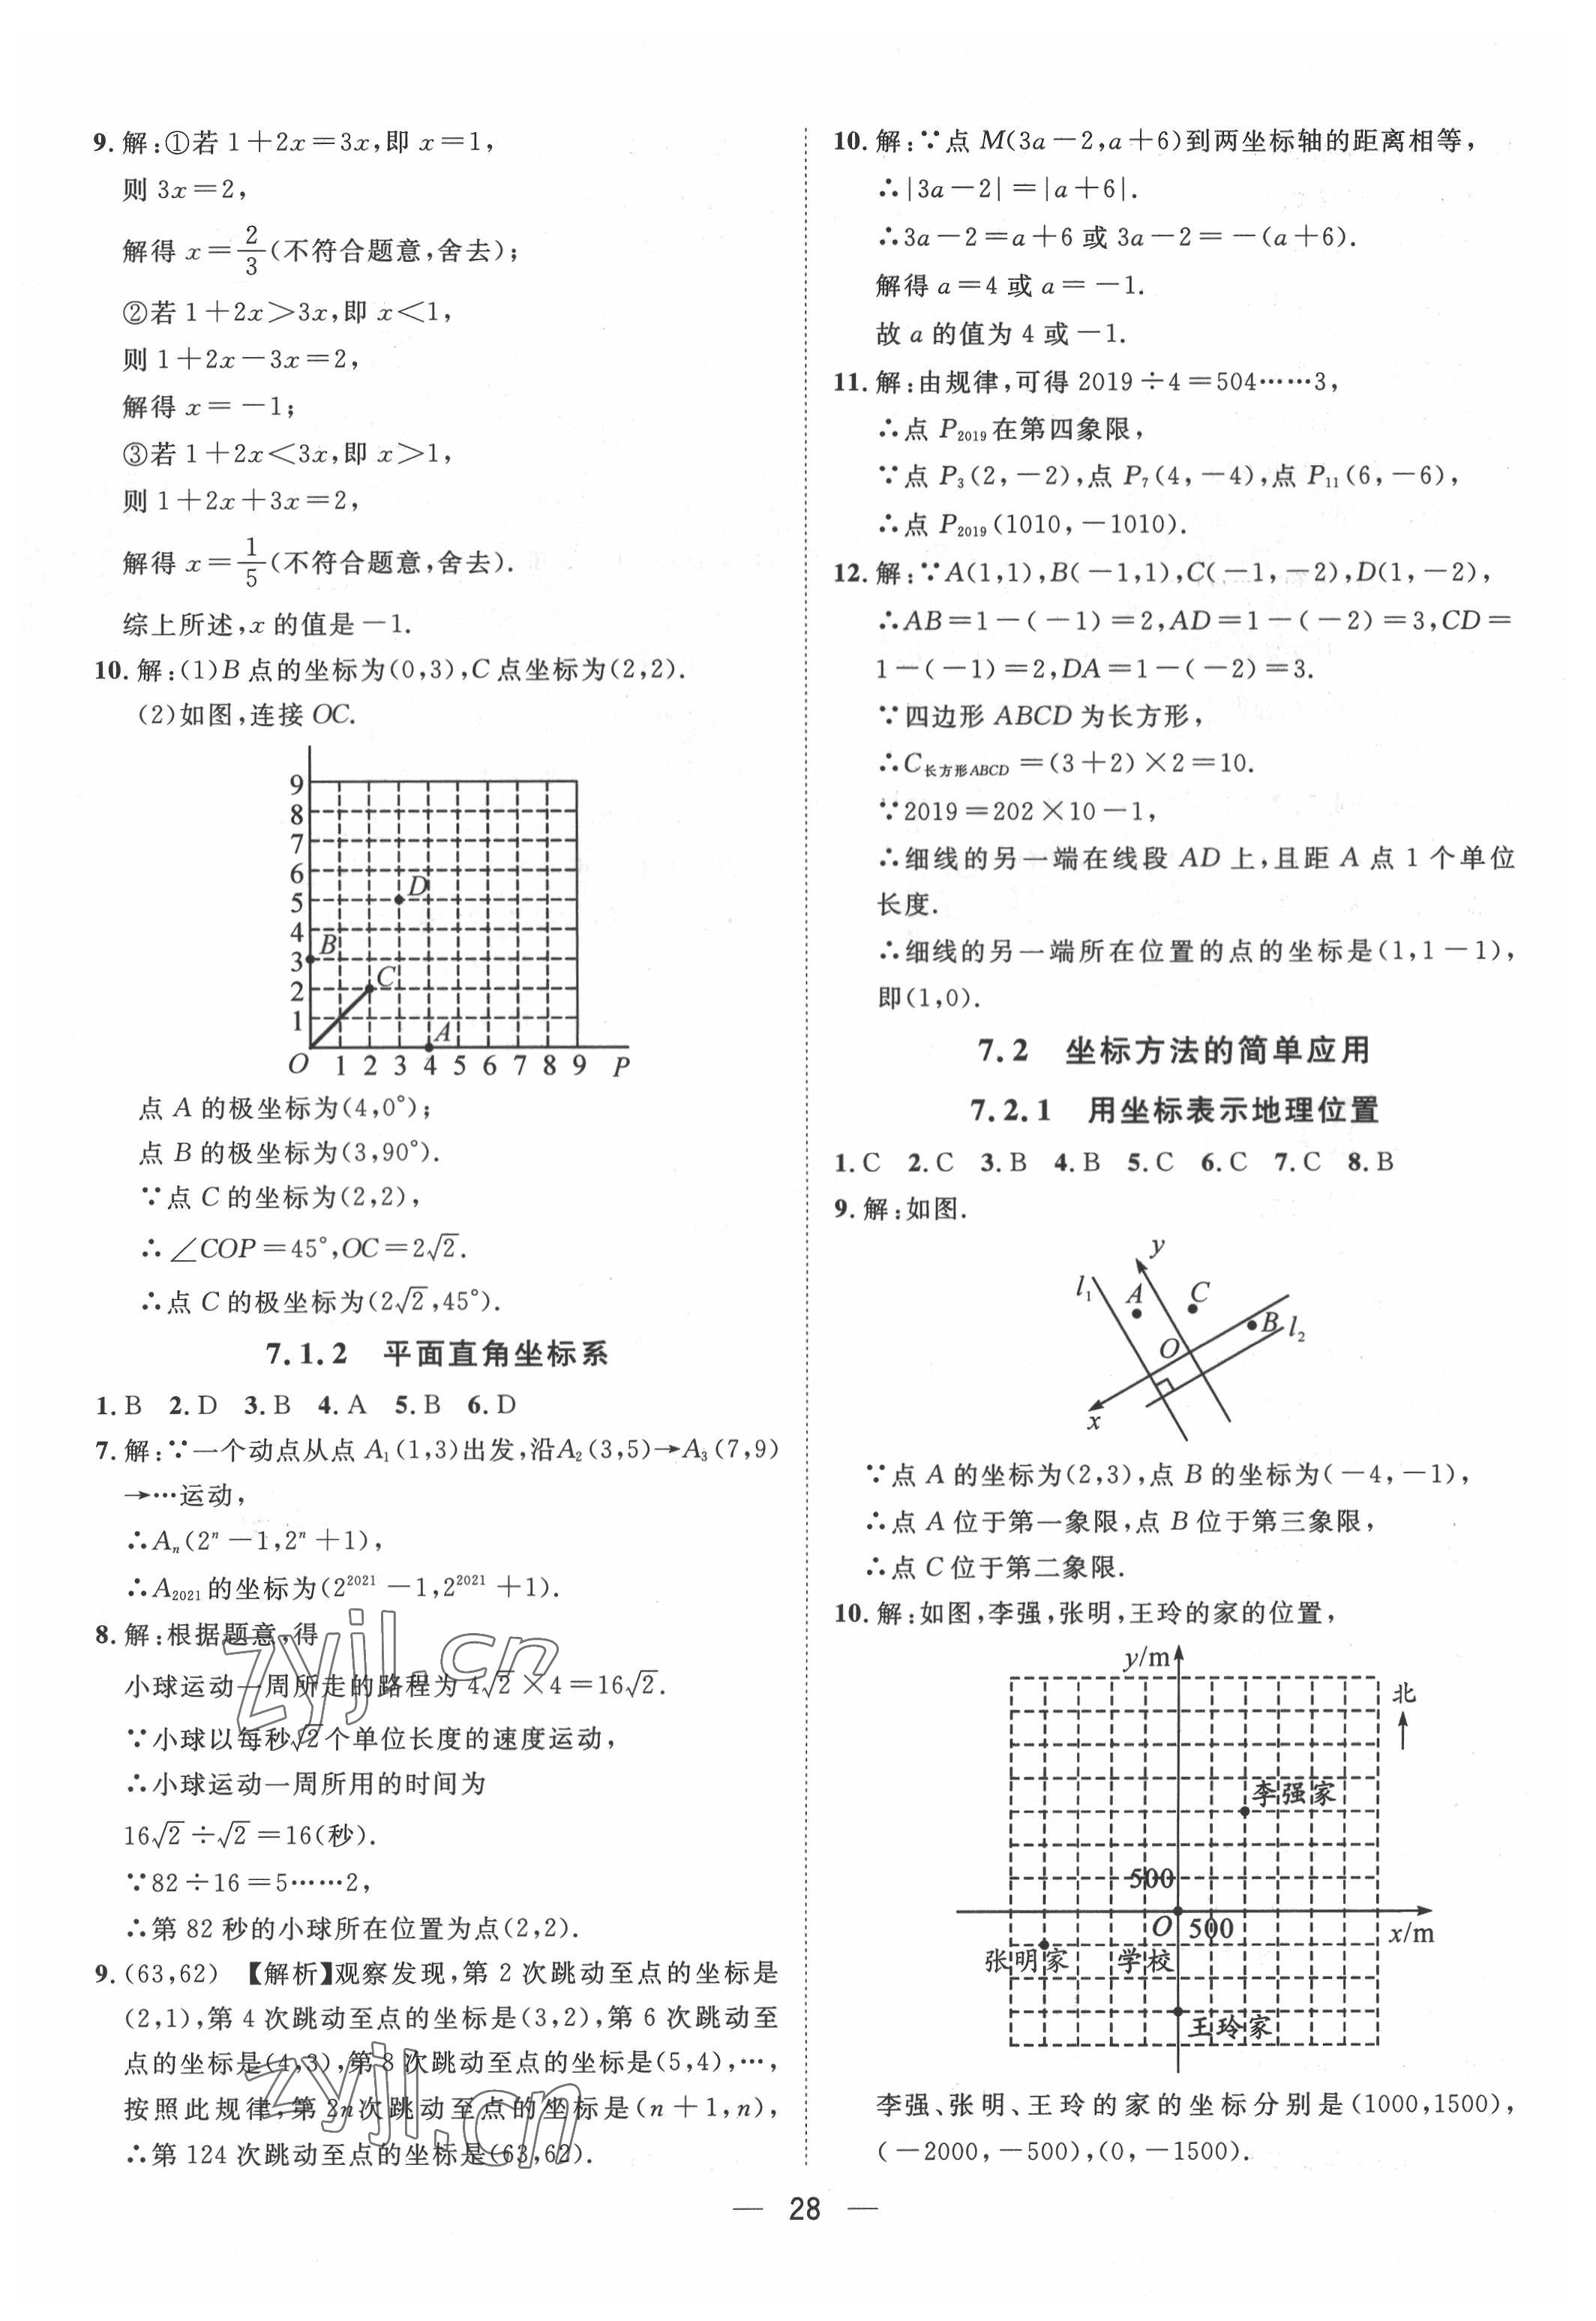 9. 解:①若 1+2x=3x,即 x=1,
则 3x=2,
解得 x=2/3(不符合题意,舍去);
②若 1+2x>3x,即 x<1,
则 1+2x-3x=2,
解得 x=-1;
③若 1+2x<3x,即 x>1,
则 1+2x+3x=2,
解得 x=1/5(不符合题意,舍去).
综上所述,x 的值是-1.
10. 解:(1)B 点的坐标为(0,3),C 点坐标为(2,2).
(2)如图,连接 OC.
9
8
7
6
5
4
3
2
1
D
B
C
A
O 1 2 3 4 5 6 7 8 9 P
点 A 的极坐标为(4,0°);
点 B 的极坐标为(3,90°).
∵点 C 的坐标为(2,2),
∴∠COP=45°,OC=2√2.
∴点 C 的极坐标为(2√2,45°).
7.1.2 平面直角坐标系
1. B 2. D 3. B 4. A 5. B 6. D
7. 解:∵一个动点从点 A₁(1,3)出发,沿A₂(3,5)→A₃(7,9)
→…运动,
∴Aₙ(2ⁿ-1,2ⁿ+1),
∴A₂₀₂₁的坐标为(2²⁰²¹-1,2²⁰²¹+1).
8. 解:根据题意,得
小球运动一周所走的路程为 4√2×4=16√2.
∵小球以每秒√2个单位长度的速度运动,
∴小球运动一周所用的时间为
16√2÷√2=16(秒).
∵82÷16=5……2,
∴第 82 秒的小球所在位置为点(2,2).
9. (63,62) 【解析】观察发现,第 2 次跳动至点的坐标是
(2,1),第 4 次跳动至点的坐标是(3,2),第 6 次跳动至
点的坐标是(4,3),第 8 次跳动至点的坐标是(5,4),…,
按照此规律,第 2n 次跳动至点的坐标是(n+1,n),
∴第 124 次跳动至点的坐标是(63,62).
zyjl.cn
zyjl.cn
10. 解:∵点 M(3a-2,a+6)到两坐标轴的距离相等,
∴|3a-2|=|a+6|.
∴3a-2=a+6 或 3a-2=-(a+6).
解得 a=4 或 a=-1.
故 a 的值为 4 或-1.
11. 解:由规律,可得 2019÷4=504……3,
∴点 P₂₀₁₉在第四象限,
∵点 P₃(2,-2),点 P₇(4,-4),点 P₁₁(6,-6),
∴点 P₂₀₁₉(1010,-1010).
12. 解:∵A(1,1),B(-1,1),C(-1,-2),D(1,-2),
∴AB=1-(-1)=2,AD=1-(-2)=3,CD=
1-(-1)=2,DA=1-(-2)=3.
∵四边形 ABCD 为长方形,
∴C长方形ABCD=(3+2)×2=10.
∵2019=202×10-1,
∴细线的另一端在线段 AD 上,且距 A 点 1 个单位
长度.
∴细线的另一端所在位置的点的坐标是(1,1-1),
即(1,0).
7.2 坐标方法的简单应用
7.2.1 用坐标表示地理位置
1. C 2. C 3. B 4. B 5. C 6. C 7. C 8. B
9. 解:如图.
y
l₁
A
C
B
l₂
O
x
∵点 A 的坐标为(2,3),点 B 的坐标为(-4,-1),
∴点 A 位于第一象限,点 B 位于第三象限,
∴点 C 位于第二象限.
10. 解:如图,李强,张明,王玲的家的位置,
y/m
北
李强家
500
O 500
x/m
张明家
学校
王玲家
李强、张明、王玲的家的坐标分别是(1000,1500),
(-2000,-500),(0,-1500).
— 28 —